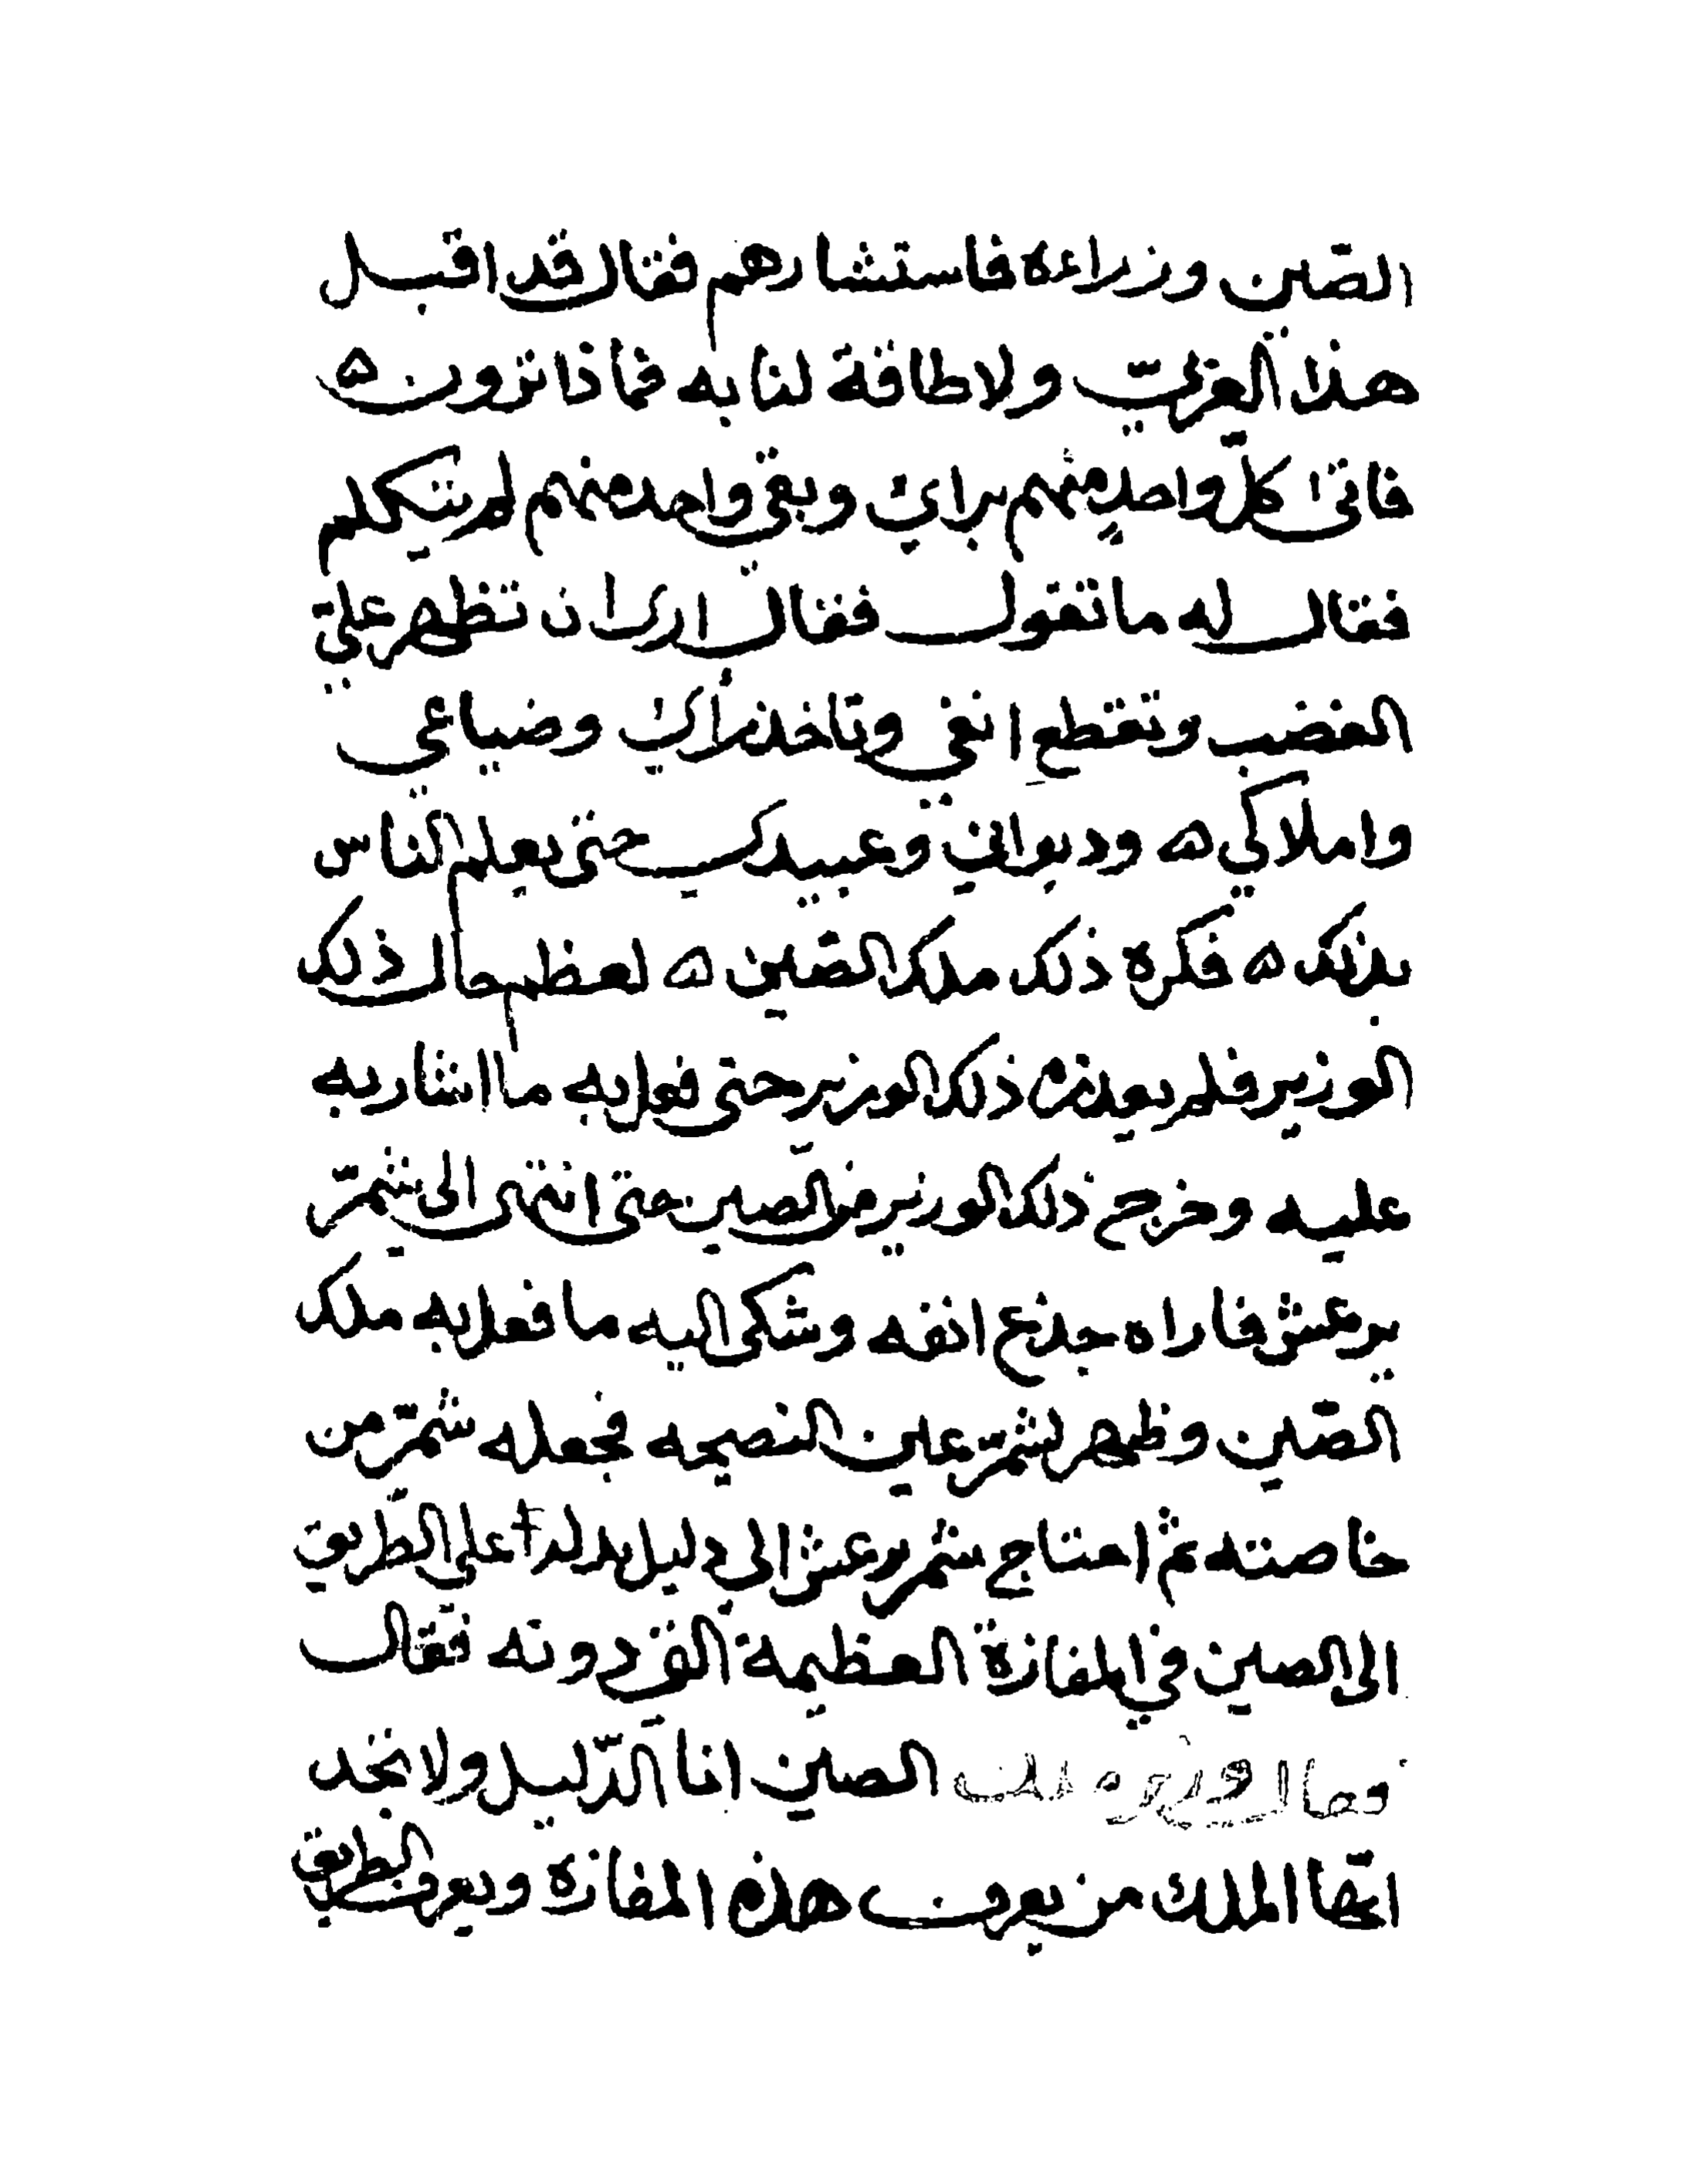 الصّين وزراءه فاستشارهم فقال قد اقبل
هذا العربيّ ولا طاقة لنا به فما ذا ترون ه
فاتىٰ كلّ واحدٍ منهم براي وبقي واحد منهم لم يتكلم
فقال له ما تقول فقال ارى ان تظهر عليّ
الغضب وتقطع انفي وتاخذ مالي وضياعي
واملاكي ه وديواني وعبيدي حتى يعلم الناس
بذلك ه فكره ذلك ملك الصّين ه لعظم حال ذلك
الوزير فلم يعدم ذلك الوزير حتى فعل به ما اشار به
عليه وخرج ذلك الوزير من الصين حتى انتهى الى شمّر
يرعش فاراه جذع انفه وشكى اليه ما فعل به ملك
الصّين وظهر لشمّر عين النصيحه فجعله شمّر من
خاصته ثم احتاج شمر يرعش الى دليل يدله على الطريق
الى الصين في المفازة العظيمة الّتي دونه فقال
فقال وزير ملك الصين انا الدّليل ولا تجد
ايّها الملك من يعرف هذه المفازه ويعرف الطريق